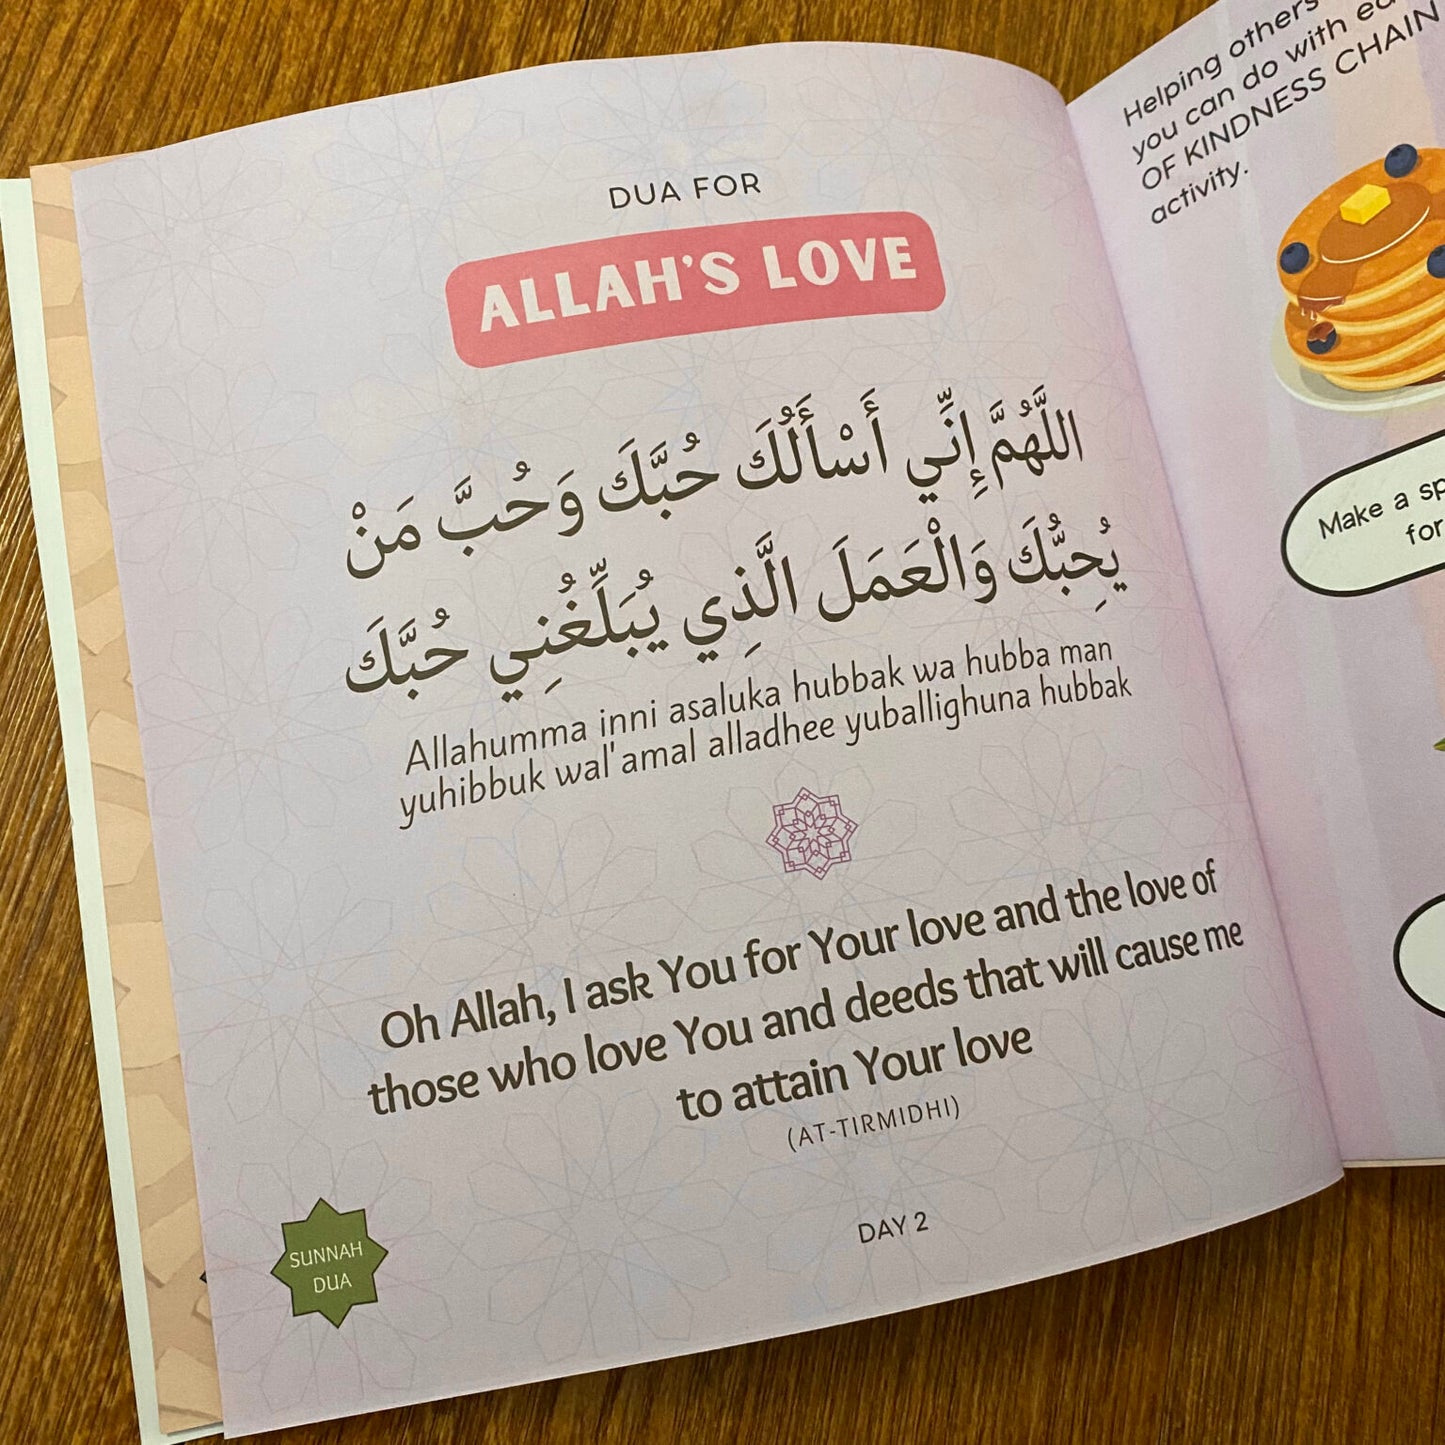 DUA FOR
ALLAH'S LOVE
اللَّهُمَّ إِنِّي أَسْأَلُكَ حُبَّكَ وَحُبَّ مَنْ
يُحِبُّكَ وَالْعَمَلَ الَّذِي يُبَلِّغُنِي حُبَّكَ
Allahumma inni asaluka hubbak wa hubba man
yuhibbuk wal'amal alladhee yuballighuna hubbak
Oh Allah, I ask You for Your love and the love of
those who love You and deeds that will cause me
to attain Your love
(AT-TIRMIDHI)
DAY 2
SUNNAH
DUA
Helping others
you can do with
OF KINDNESS CHAIN
activity.
Make a
for